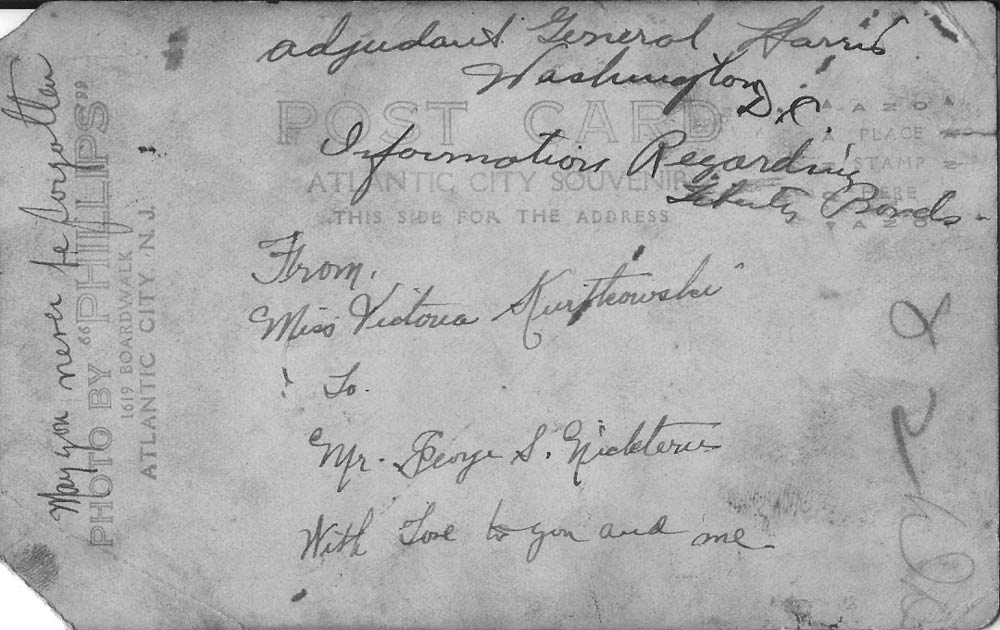 adjudant General Harris
Washington
D.C.
POST CARD
Information Regarding
Liberty Bonds
ATLANTIC CITY SOUVENIR
THIS SIDE FOR THE ADDRESS
AZO
PLACE
STAMP
HERE
AZO
From,
Miss Victoria Kurtkowski
To.
Mr. George S.
With Love to you and me
May you never be forgotten
PHOTO BY "PHILLIPS"
1619 BOARDWALK
ATLANTIC CITY, N.J.